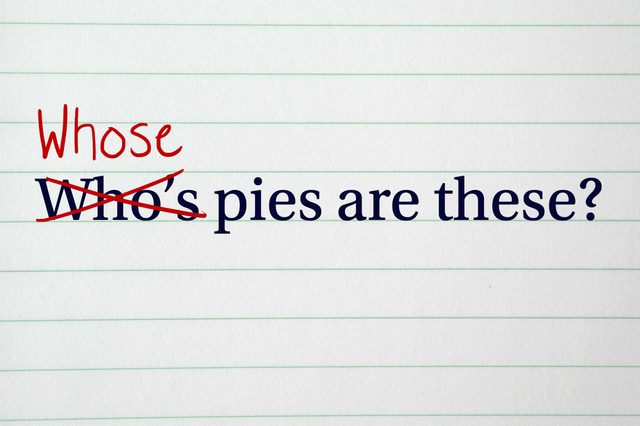 Whose
Who's pies are these?